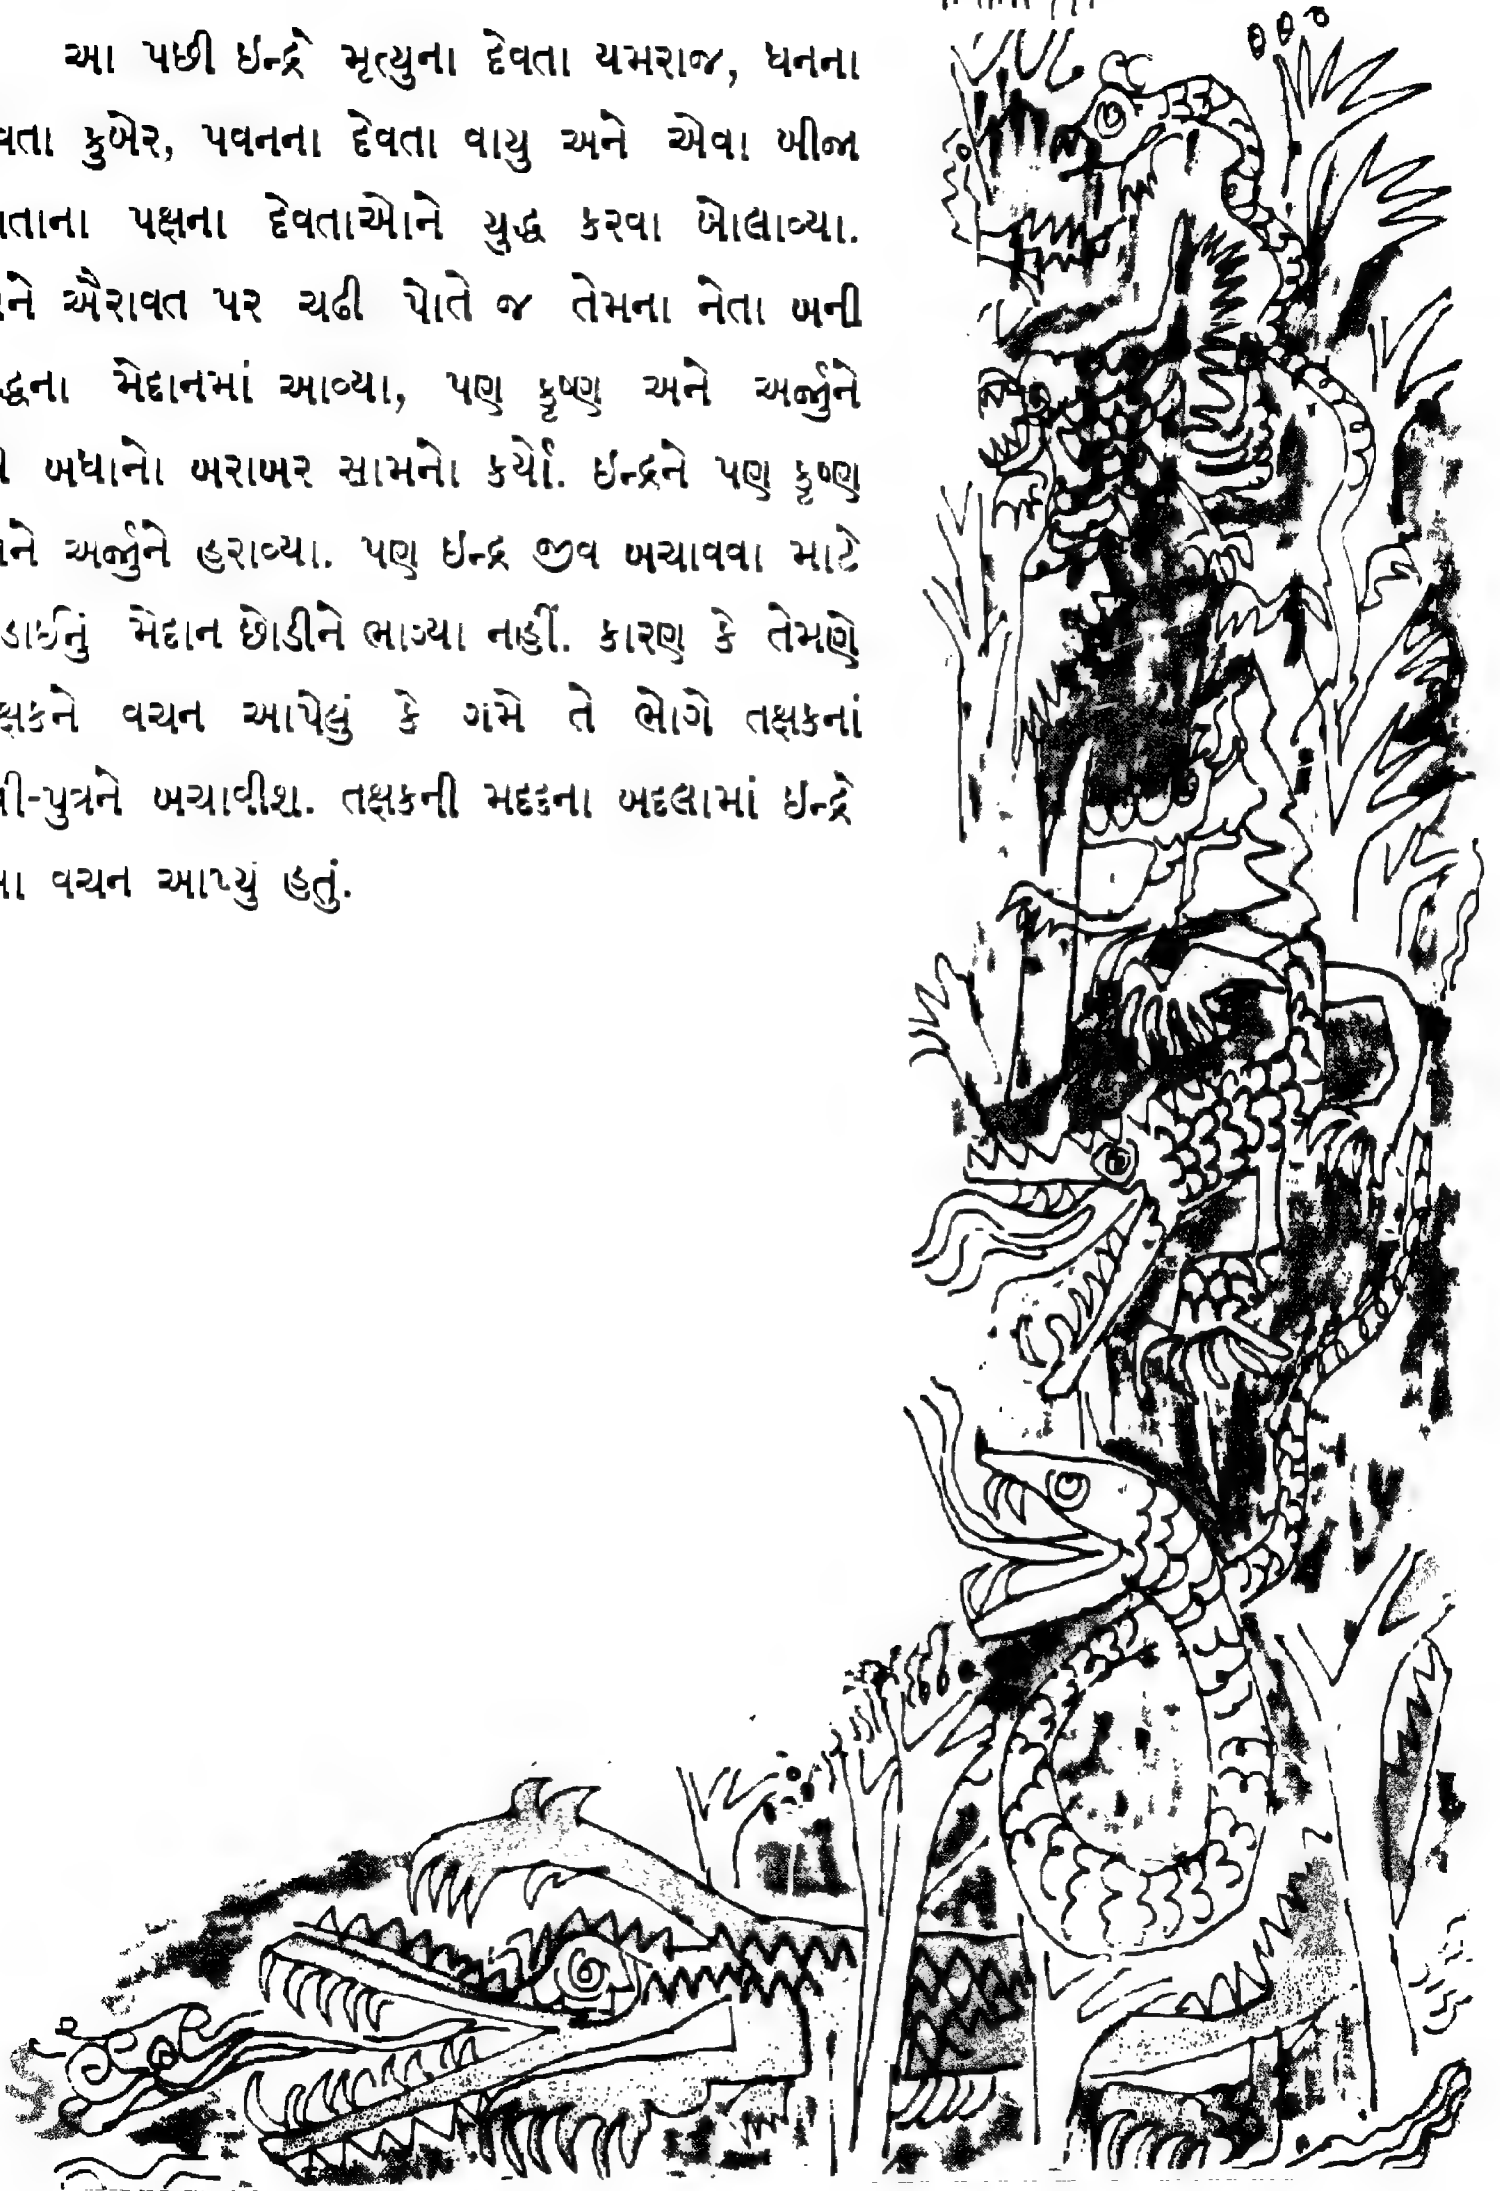 આ પછી ઇન્દ્રે મૃત્યુના દેવતા યમરાજ, ધનના
વતા કુબેર, પવનના દેવતા વાયુ અને એવા બીજા
તાના પક્ષના દેવતાઓને યુદ્ધ કરવા બોલાવ્યા.
ને ઐરાવત પર ચઢી પોતે જ તેમના નેતા બની
દ્ધના મેદાનમાં આવ્યા, પણ કૃષ્ણ અને અર્જુને
બધાનો બરાબર સામનો કર્યો. ઇન્દ્રને પણ કૃષ્ણ
ને અર્જુને હરાવ્યા. પણ ઇન્દ્ર જીવ બચાવવા માટે
ડાઈનું મેદાન છોડીને ભાગ્યા નહીં. કારણ કે તેમણે
ક્ષકને વચન આપેલું કે ગમે તે ભોગે તક્ષકનાં
ી-પુત્રને બચાવીશ. તક્ષકની મદદના બદલામાં ઇન્દ્રે
વચન આપ્યું હતું.